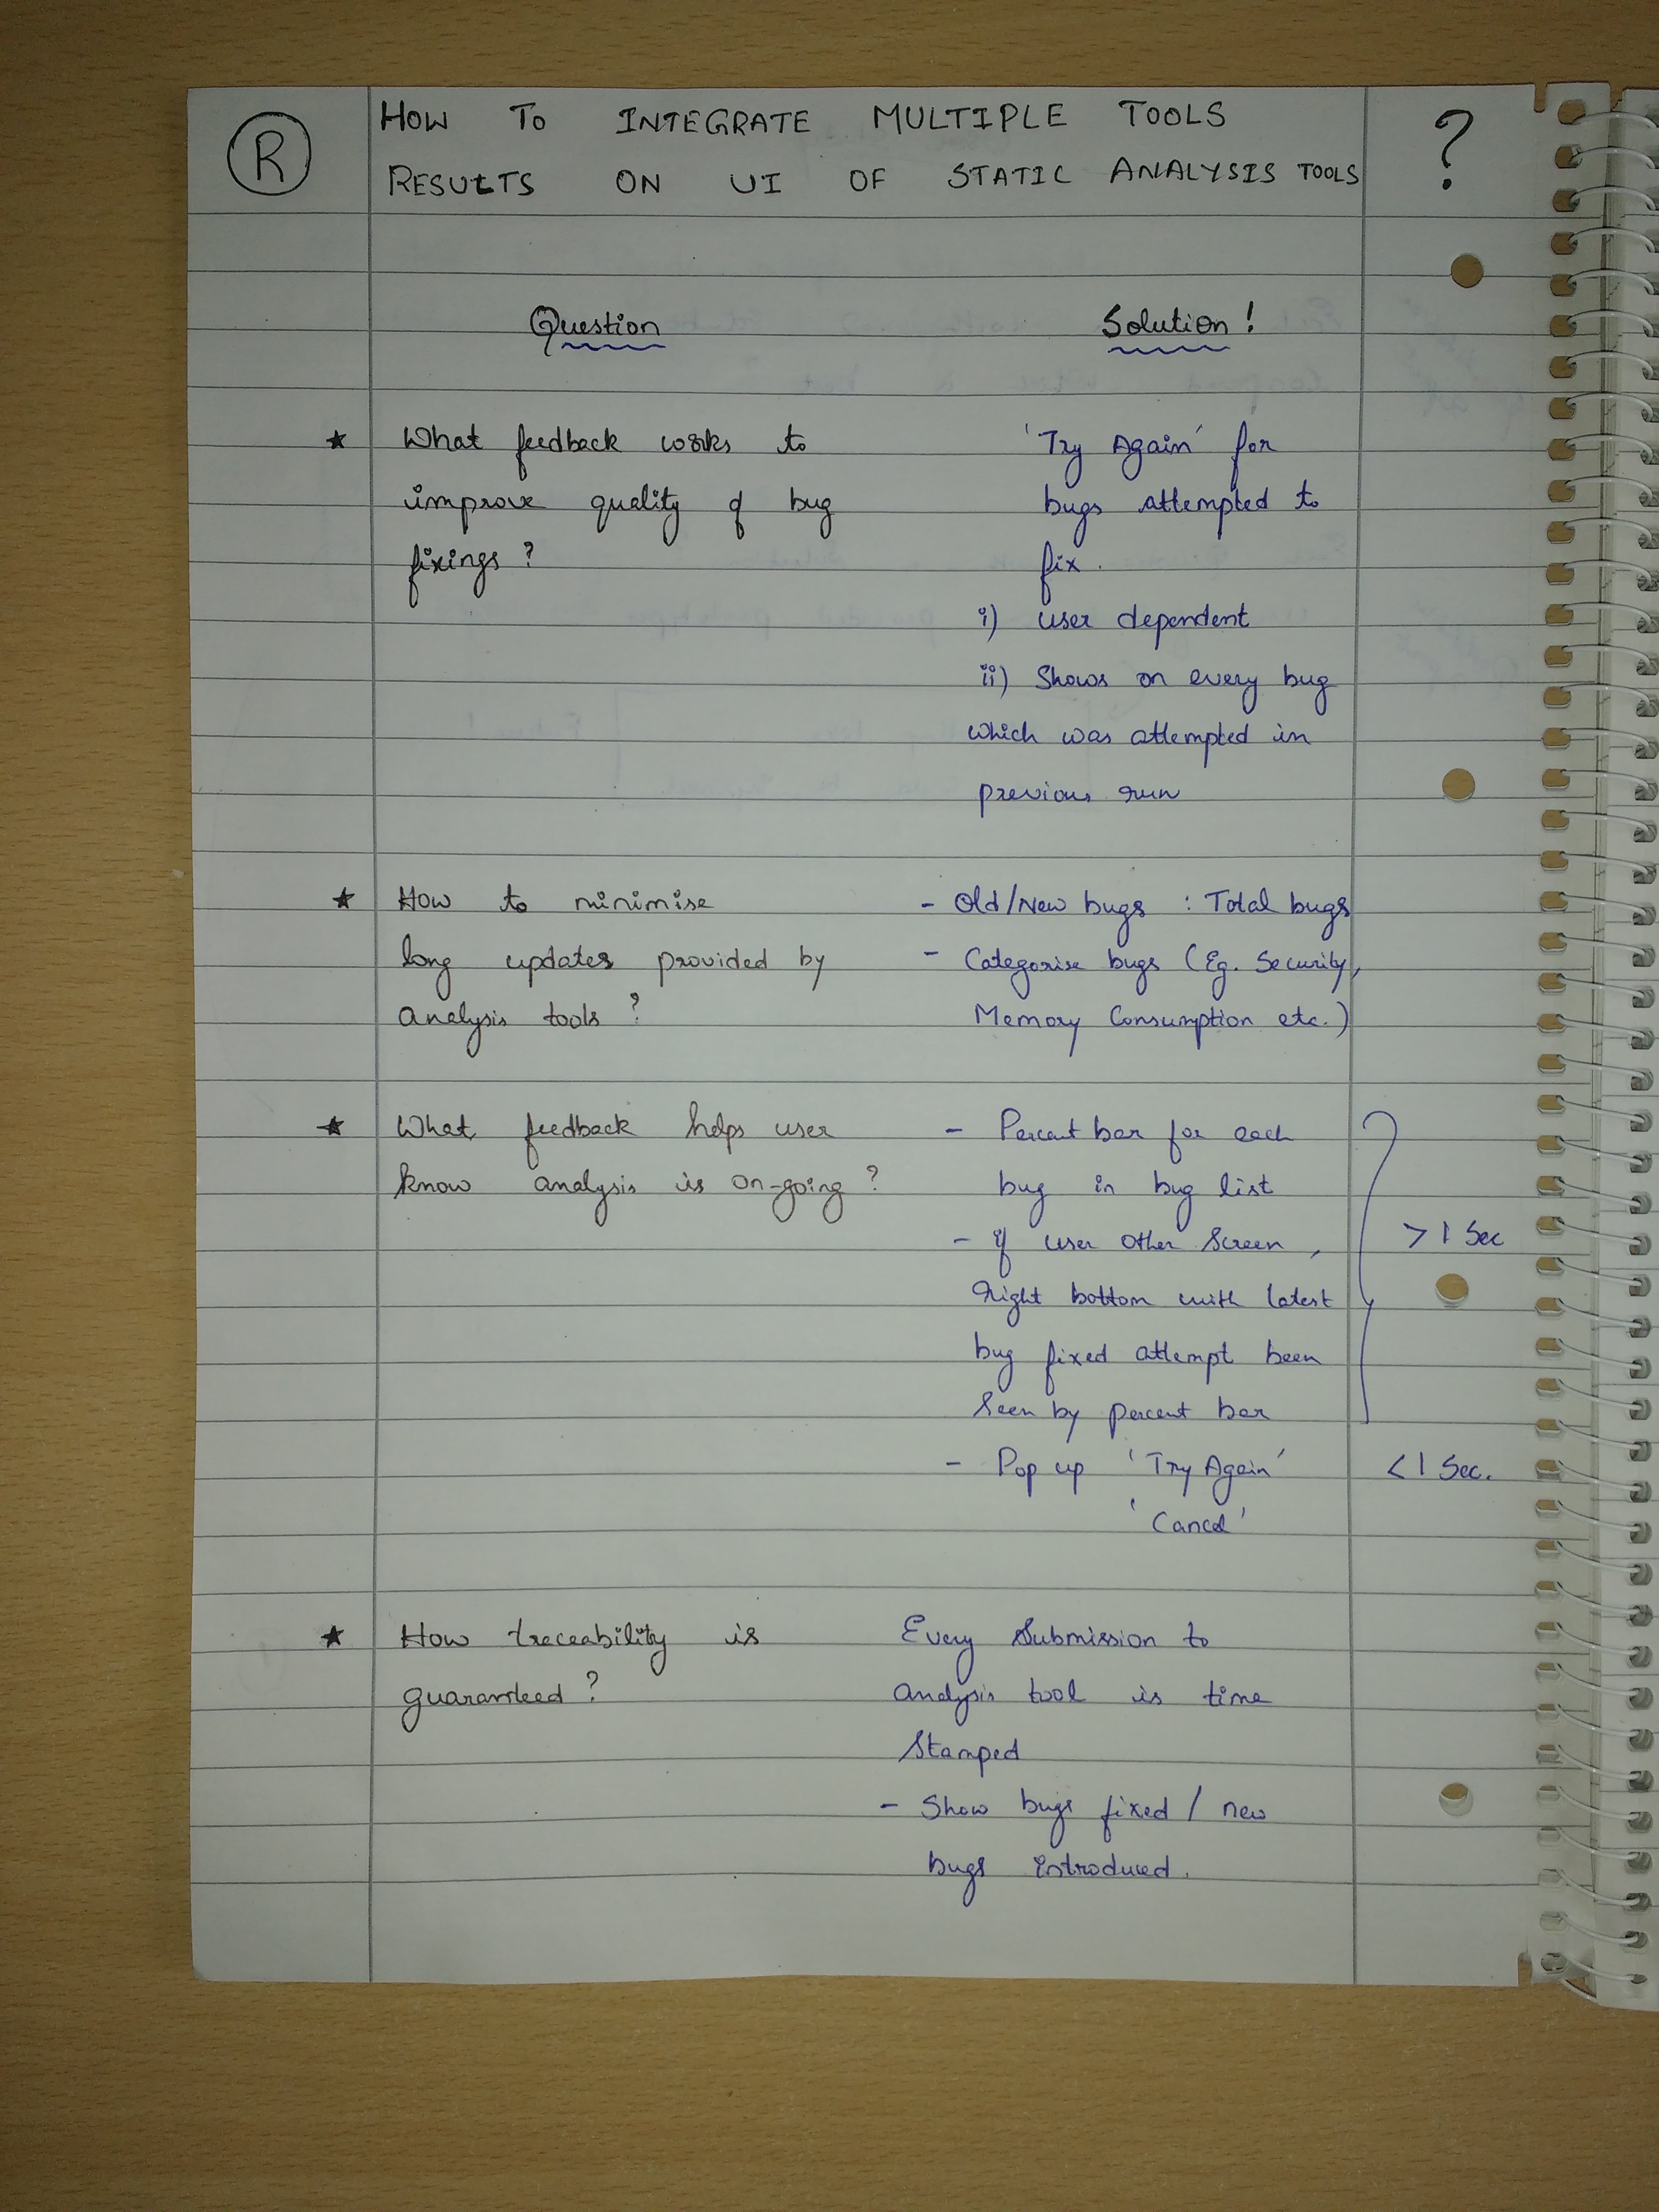 R
HOW TO INTEGRATE MULTIPLE TOOLS
RESULTS ON UI OF STATIC ANALYSIS TOOLS
?
Question
Solution!
★ What feedback works to
improve quality of bug
fixings?
'Try Again' for
bugs attempted to
fix.
i) user dependent
ii) Shows on every bug
which was attempted in
previous run
★ How to minimise
long updates provided by
analysis tools?
- Old/New bugs : Total bugs
- Categorise bugs (Eg. Security,
Memory Consumption etc.)
★ What feedback helps user
know analysis is on-going?
- Percent bar for each
bug in bug list
- if user other screen,
right bottom with latest
bug fixed attempt been
seen by percent bar
> 1 Sec
- Pop up 'Try Again'
'Cancel'
< 1 Sec.
★ How traceability is
guaranteed?
Every Submission to
analysis tool is time
Stamped
- Show bugs fixed / new
bugs introduced.